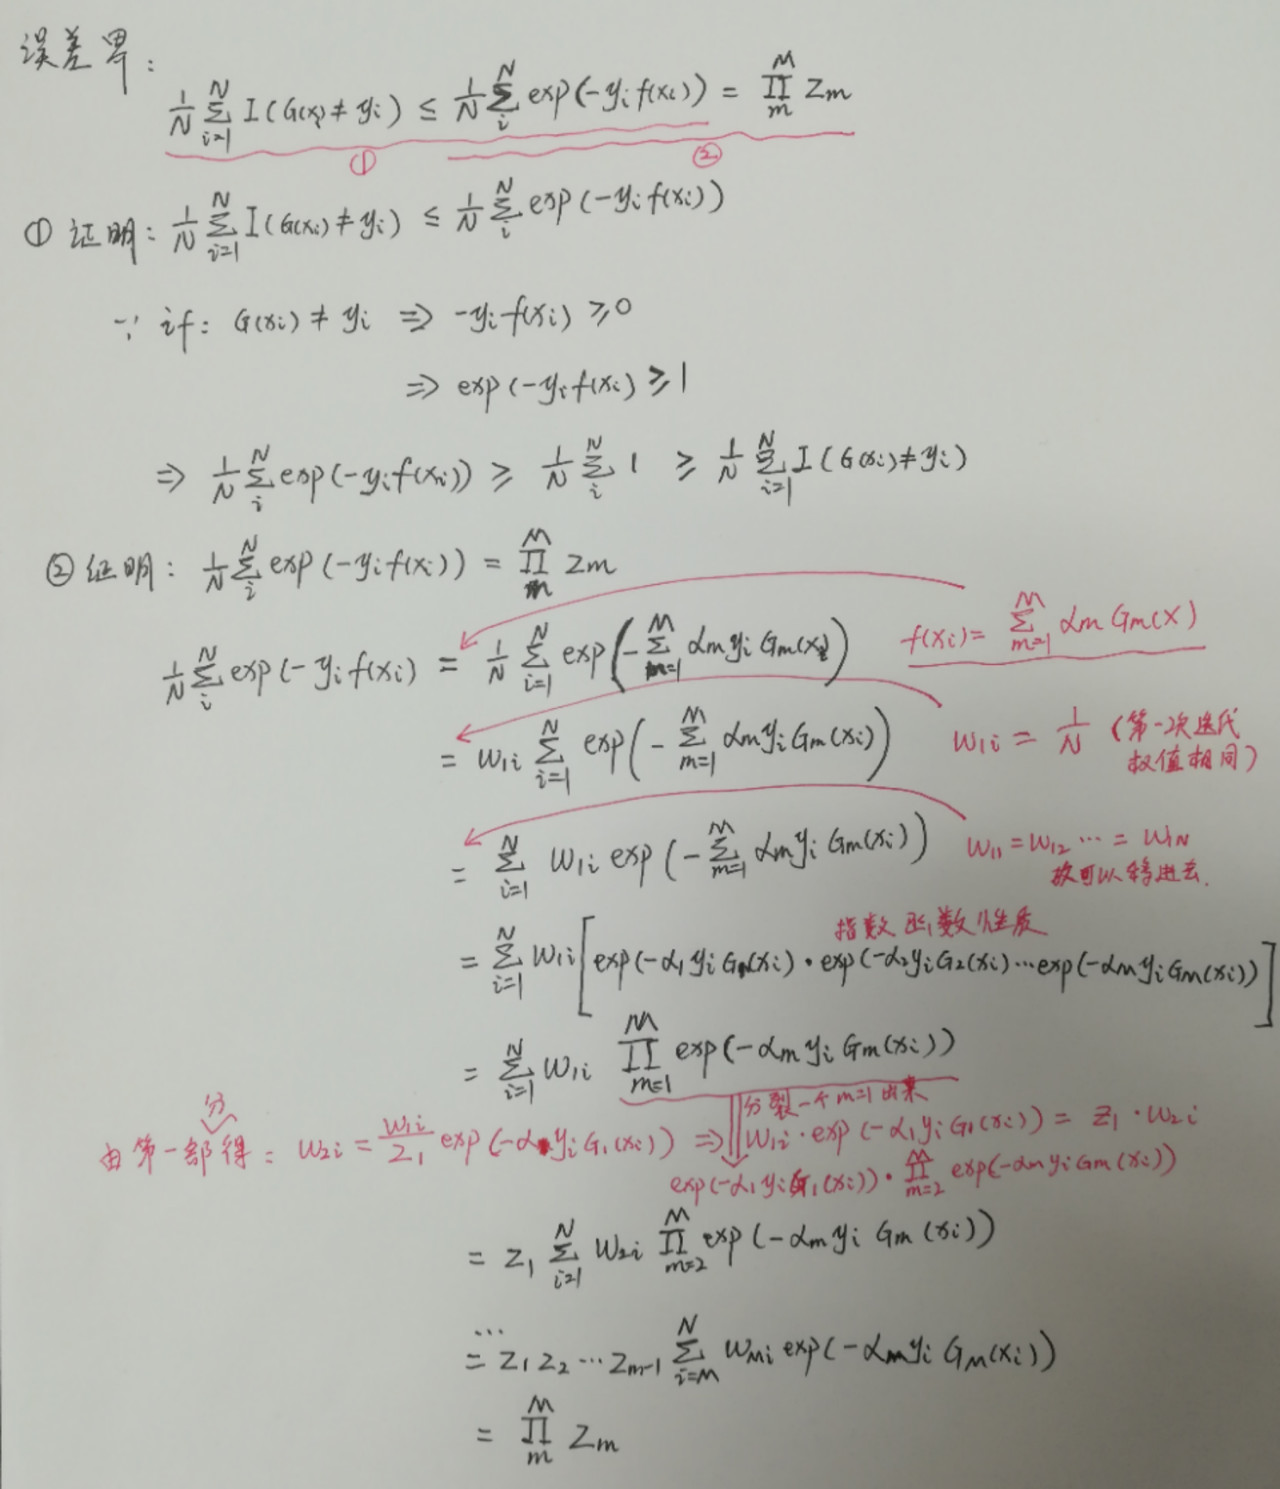 误差界:
1/N Σ_{i=1}^N I(G(x_i) ≠ y_i) ≤ 1/N Σ_i^N exp(-y_i f(x_i)) = Π_m^M Z_m
① ②
① 证明: 1/N Σ_{i=1}^N I(G(x_i) ≠ y_i) ≤ 1/N Σ_i^N exp(-y_i f(x_i))
∵ if: G(x_i) ≠ y_i ⇒ -y_i f(x_i) ≥ 0
⇒ exp(-y_i f(x_i) ≥ 1
⇒ 1/N Σ_i^N exp(-y_i f(x_i)) ≥ 1/N Σ_i^N 1 ≥ 1/N Σ_{i=1}^N I(G(x_i) ≠ y_i)
② 证明: 1/N Σ_i^N exp(-y_i f(x_i)) = Π_m^M Z_m
1/N Σ_i^N exp(-y_i f(x_i) = 1/N Σ_{i=1}^N exp(-Σ_{m=1}^M α_m y_i G_m(x_i)) f(x_i) = Σ_{m=1}^M α_m G_m(x)
= w_{1i} Σ_{i=1}^N exp(-Σ_{m=1}^M α_m y_i G_m(x_i)) w_{1i} = 1/N (第一次迭代
权值相同)
= Σ_{i=1}^N w_{1i} exp(-Σ_{m=1}^M α_m y_i G_m(x_i)) w_{11} = w_{12} ⋯ = w_{1N}
故可以移进去.
指数函数性质
= Σ_{i=1}^N w_{1i} [exp(-α_1 y_i G_1(x_i) · exp(-α_2 y_i G_2(x_i) ⋯ exp(-α_m y_i G_m(x_i))]
= Σ_{i=1}^N w_{1i} Π_{m=1}^M exp(-α_m y_i G_m(x_i))
分裂一个m=1出来
分
由第一部得: w_{2i} = w_{1i}/Z_1 exp(-α y_i G_1(x_i)) ⇒ w_{1i} · exp(-α_1 y_i G_1(x_i)) = Z_1 · w_{2i}
exp(-α_1 y_i G_1(x_i)) · Π_{m=2}^M exp(-α_m y_i G_m(x_i))
= Z_1 Σ_{i=1}^N w_{2i} Π_{m=2}^M exp(-α_m y_i G_m(x_i))
⋯
= Z_1 Z_2 ⋯ Z_{m-1} Σ_{i=M}^N w_{Mi} exp(-α_m y_i G_M(x_i))
= Π_m^M Z_m